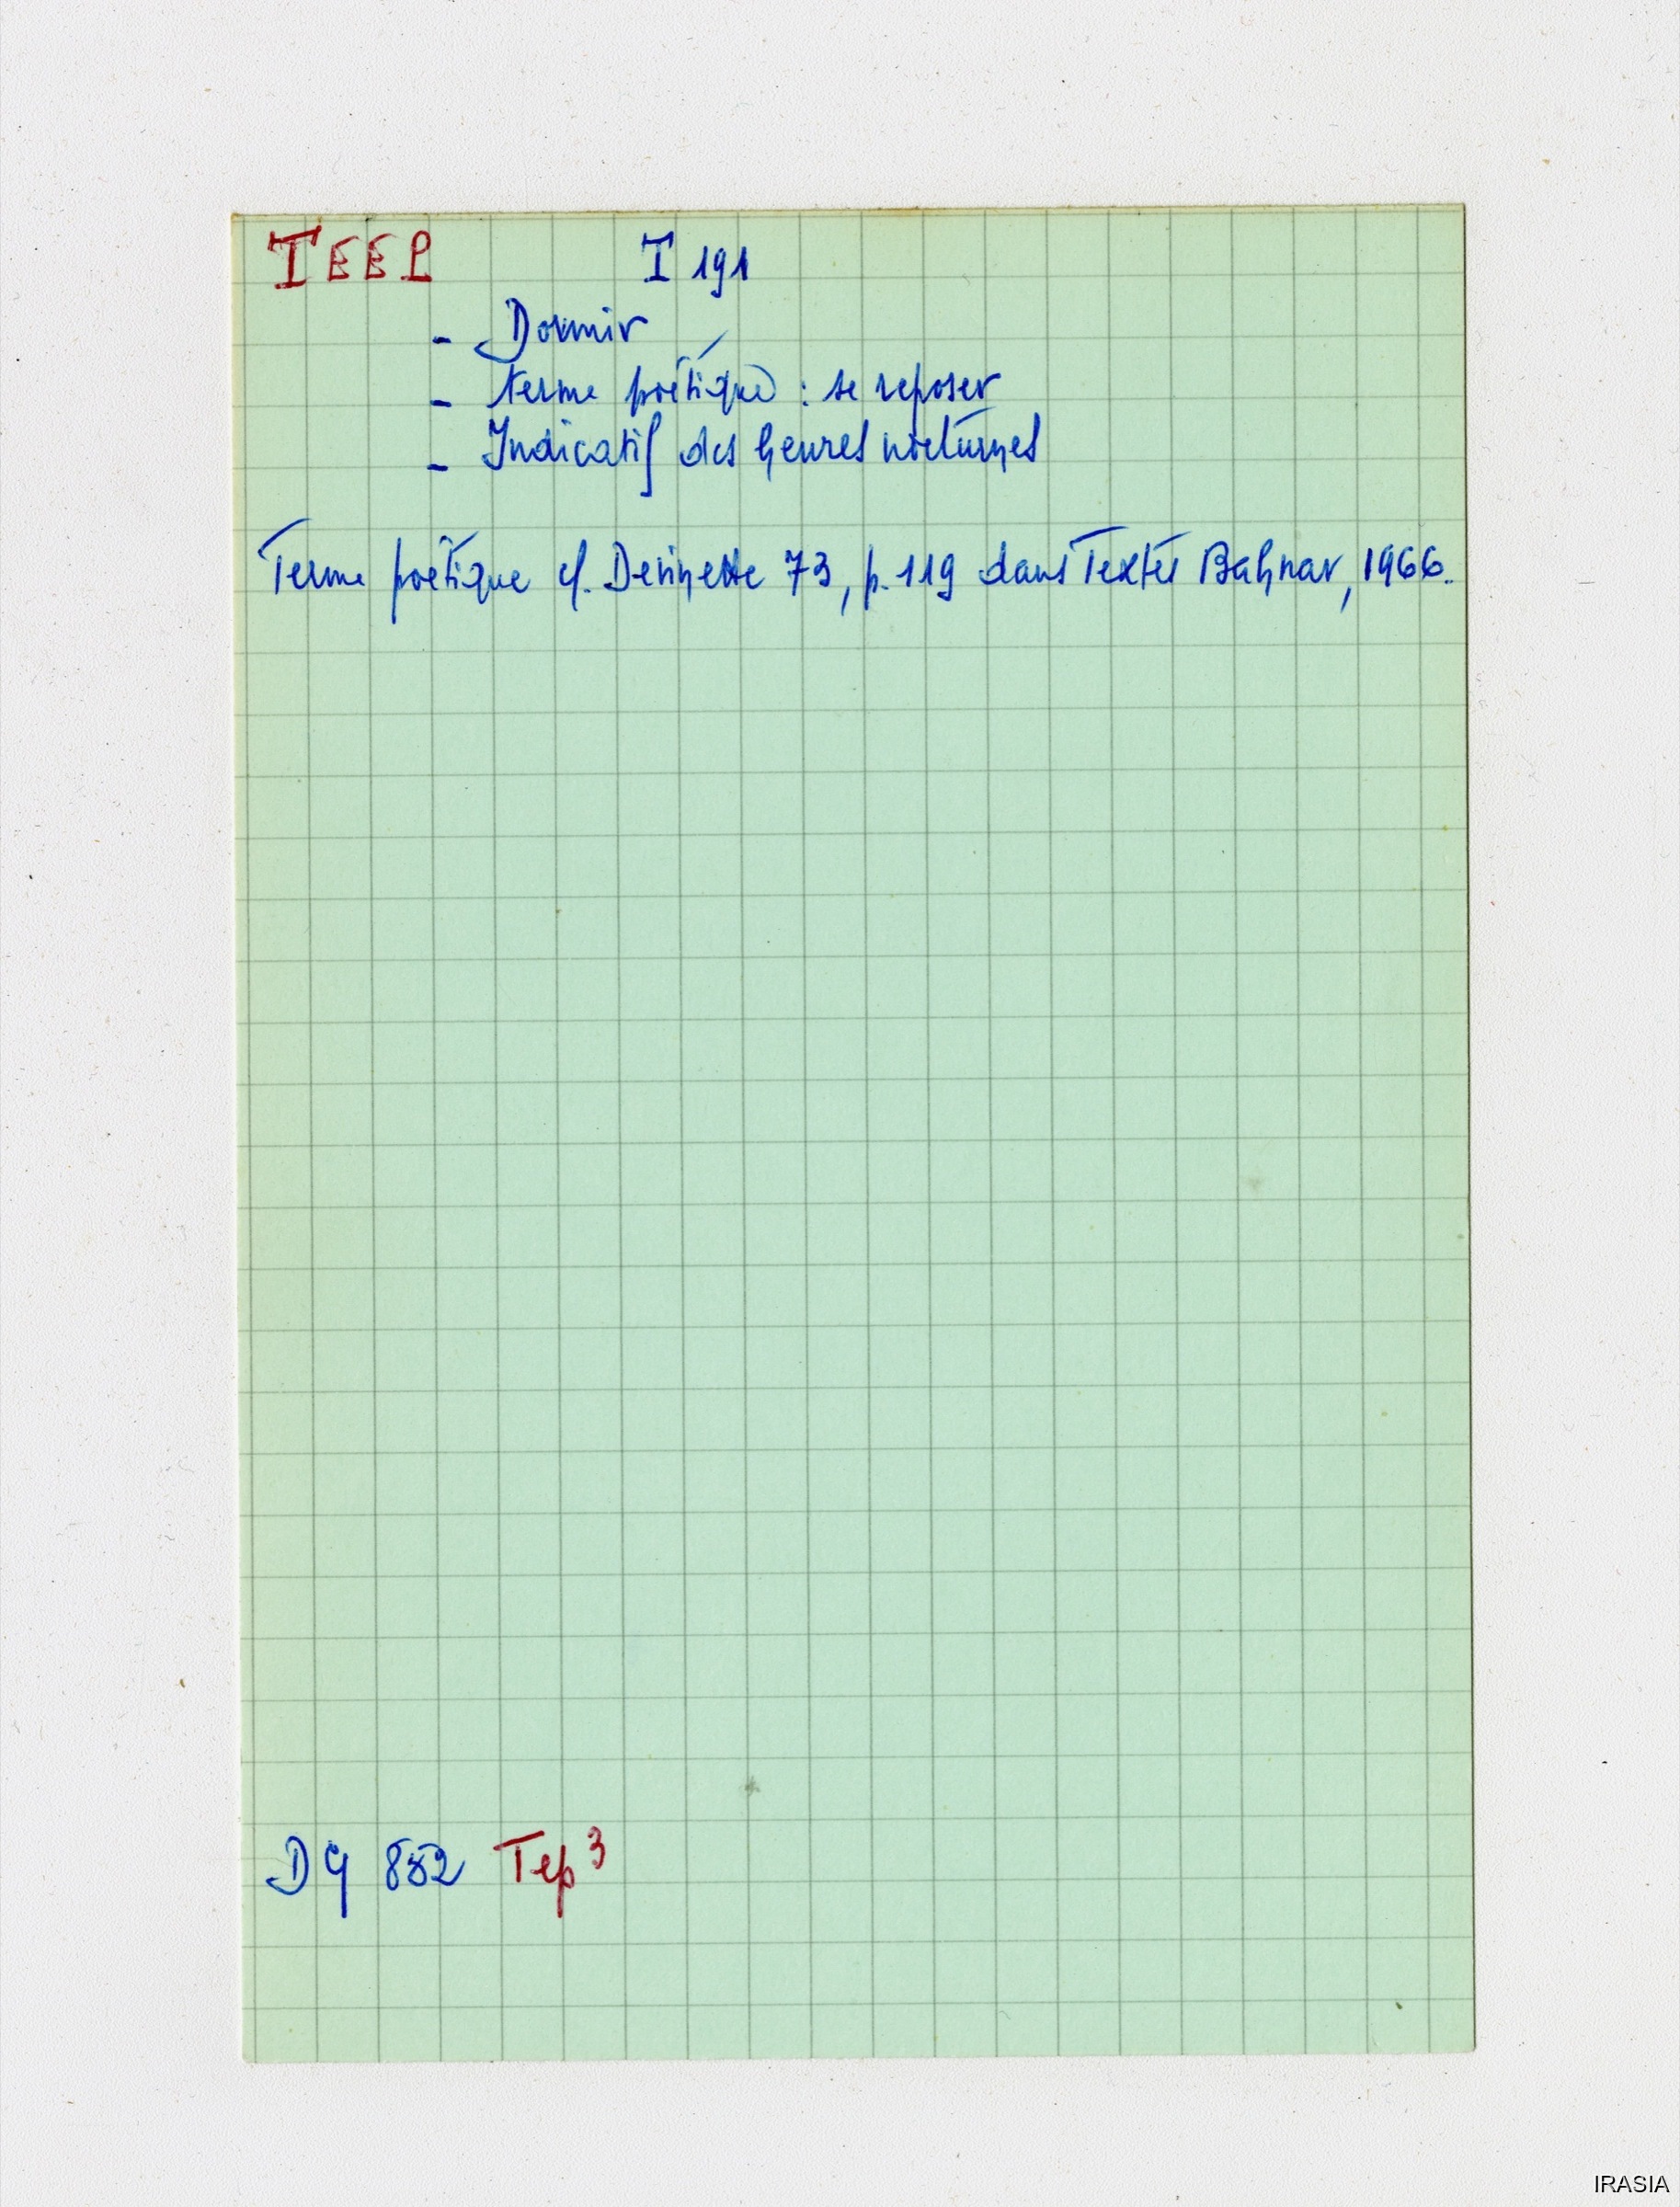 TEEP T 191
- Dormir
- terme poétique : se reposer
- Indicatif des heures nocturnes
Terme poétique cf. Devinette 73, p. 119 dans Textes Bahnar, 1966.
DG 852 Tep 3
IRASIA